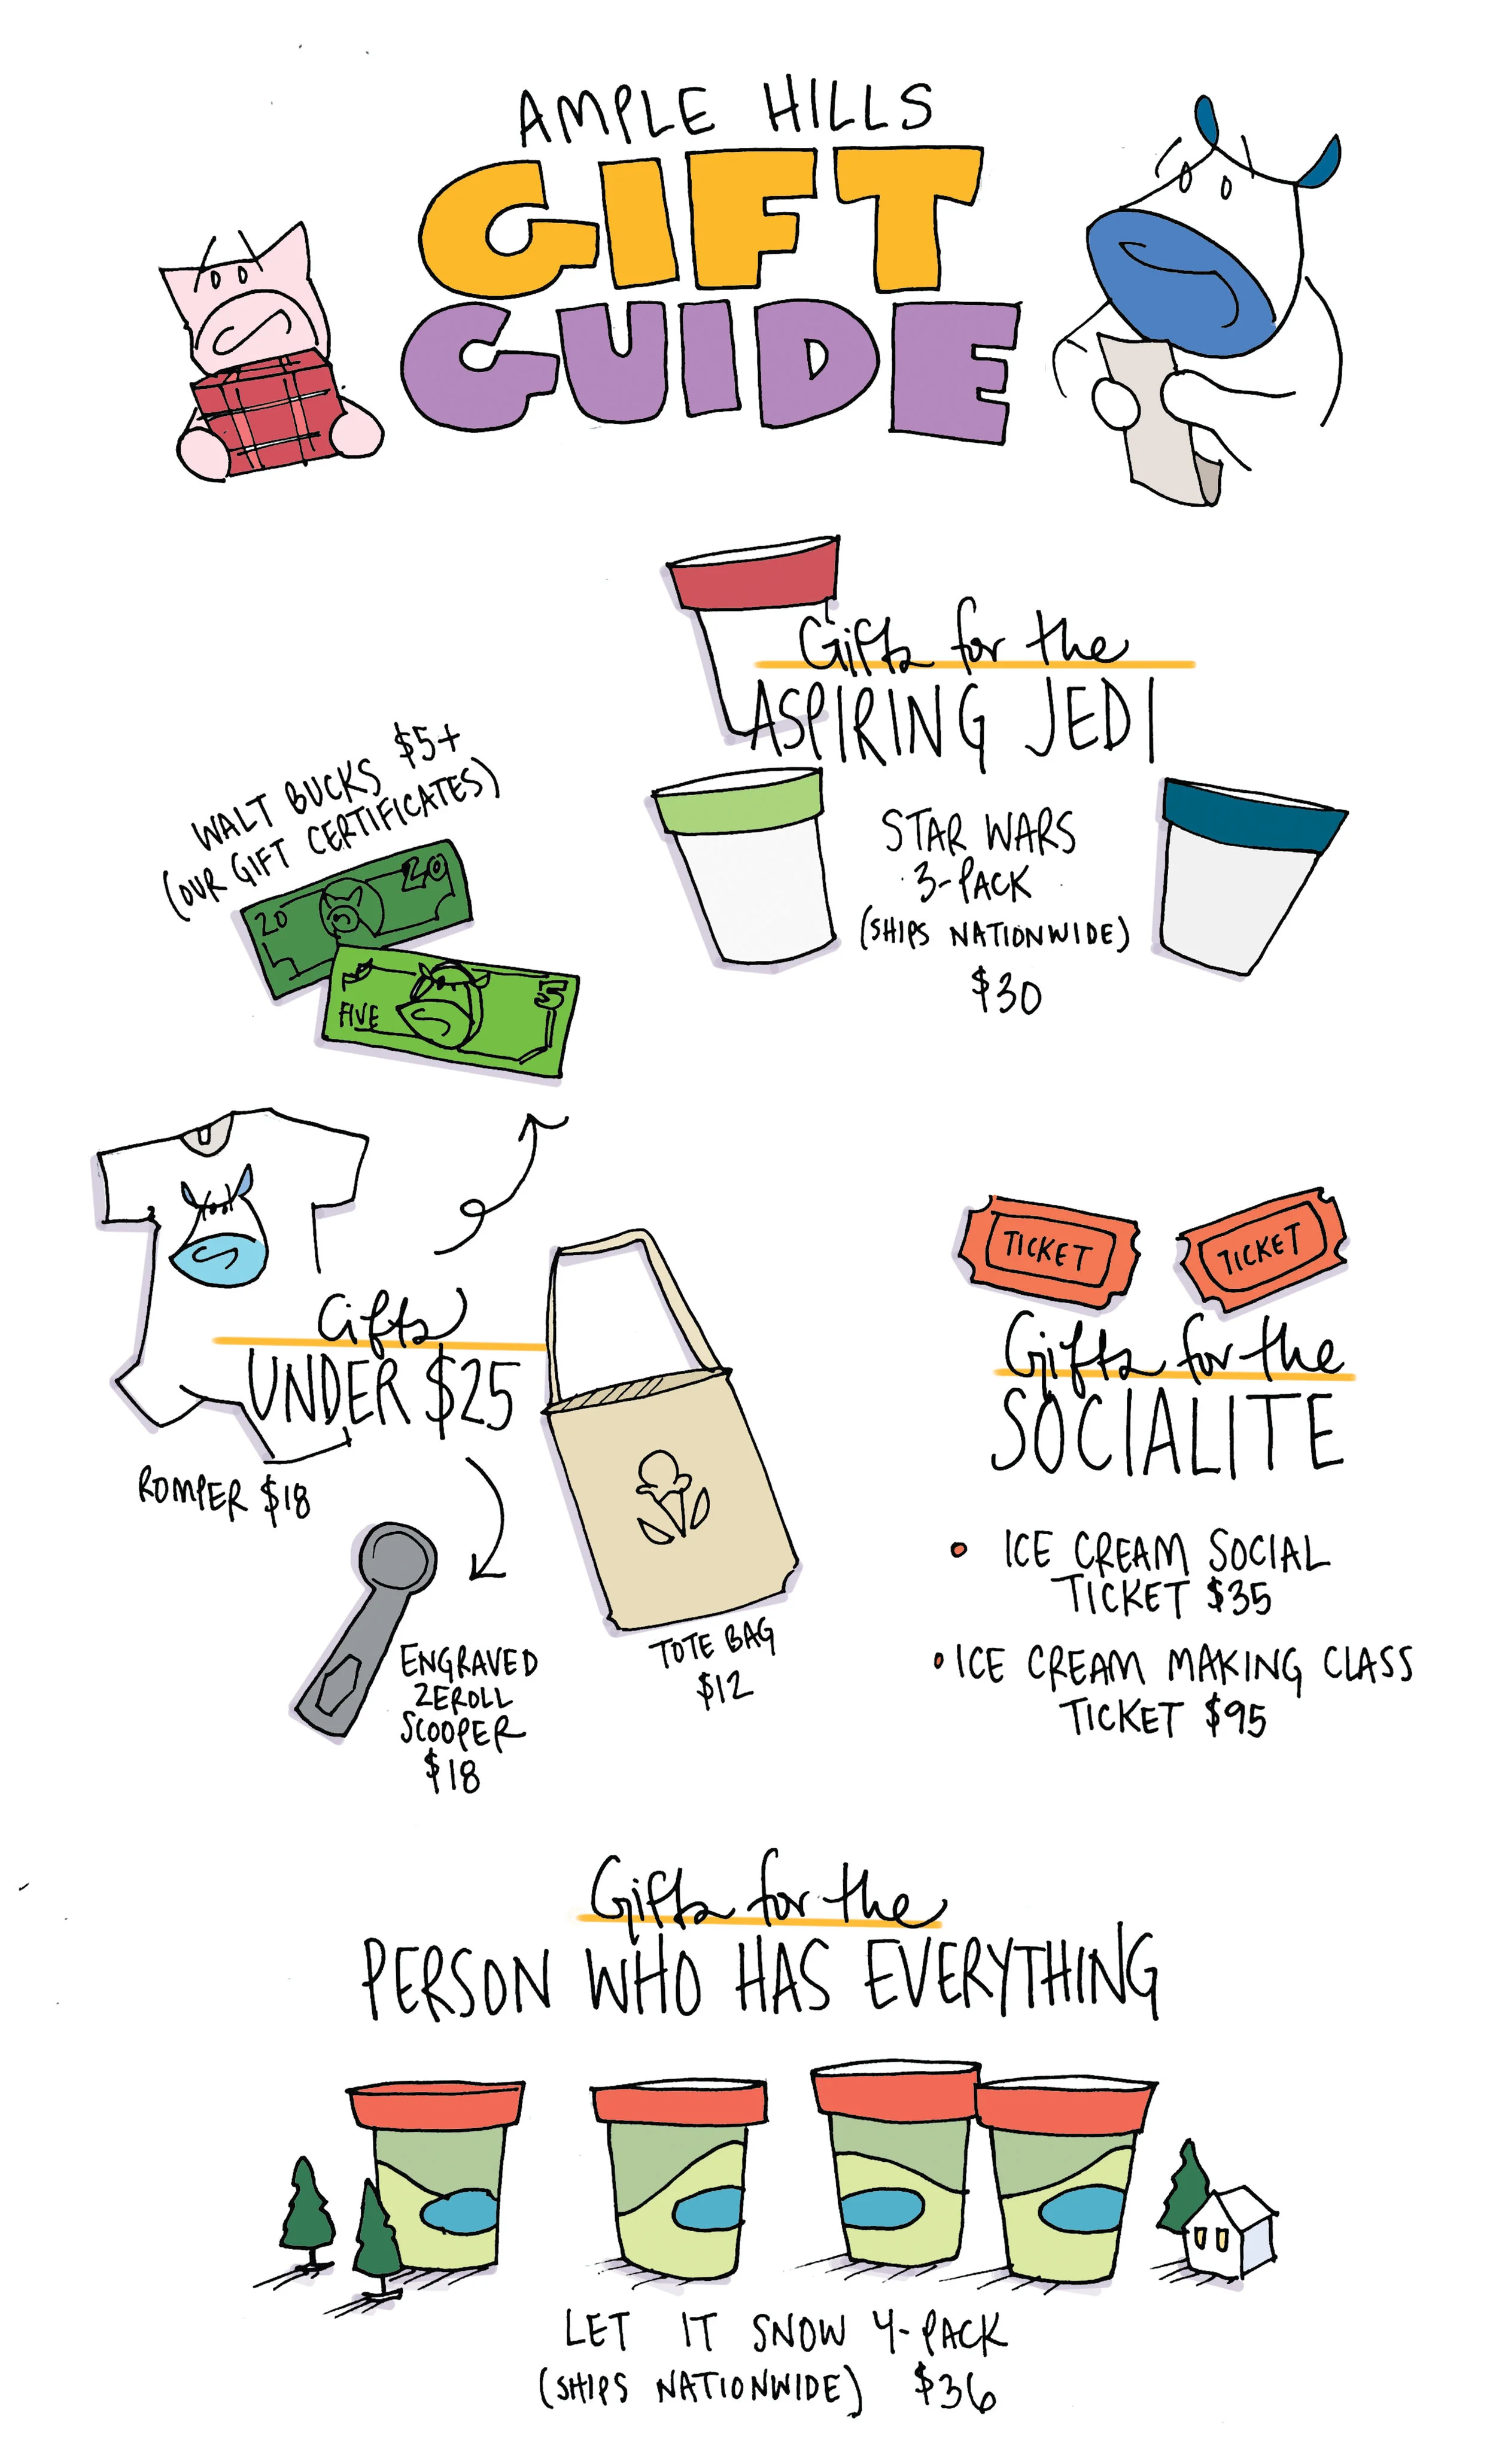 AMPLE HILLS
GIFT
GUIDE
Gifts for the
ASPIRING JEDI
STAR WARS
3-PACK
(SHIPS NATIONWIDE)
$30
WALT BUCKS $5+
(OUR GIFT CERTIFICATES)
20
20
FIVE
5
Gifts
UNDER $25
ROMPER $18
ENGRAVED
ZEROLL
SCOOPER
$18
TOTE BAG
$12
TICKET
TICKET
Gifts for the
SOCIALITE
• ICE CREAM SOCIAL
TICKET $35
• ICE CREAM MAKING CLASS
TICKET $95
Gifts for the
PERSON WHO HAS EVERYTHING
LET IT SNOW 4-PACK
(SHIPS NATIONWIDE) $36